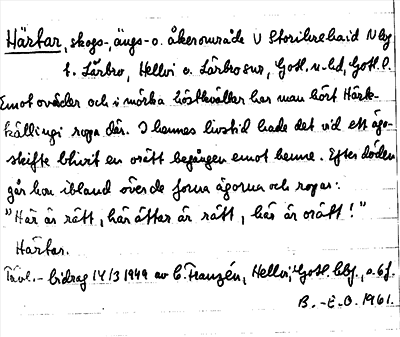 Härtar, skogs-, ängs- o. åkerområde V Storihrehaid N by
t. Lärbro, Hellvi o. Lärbro snr, Gotl. n. hd, Gotl. l.
Emot oväder och i mörka höstkvällar har man hört Härk-
källingi ropa där. I hennes livstid hade det vid ett ägo-
skifte blivit en orätt begången emot henne. Efter döden
går hon ibland över de forna ägorna och ropar:
"Här är rätt, här åttar är rätt, här är orätt!"
Härtar.
Tävl.-bidrag 14/3 1949 av C. Franzén, Hellvi, Gotl.
B.-E. O. 1961.